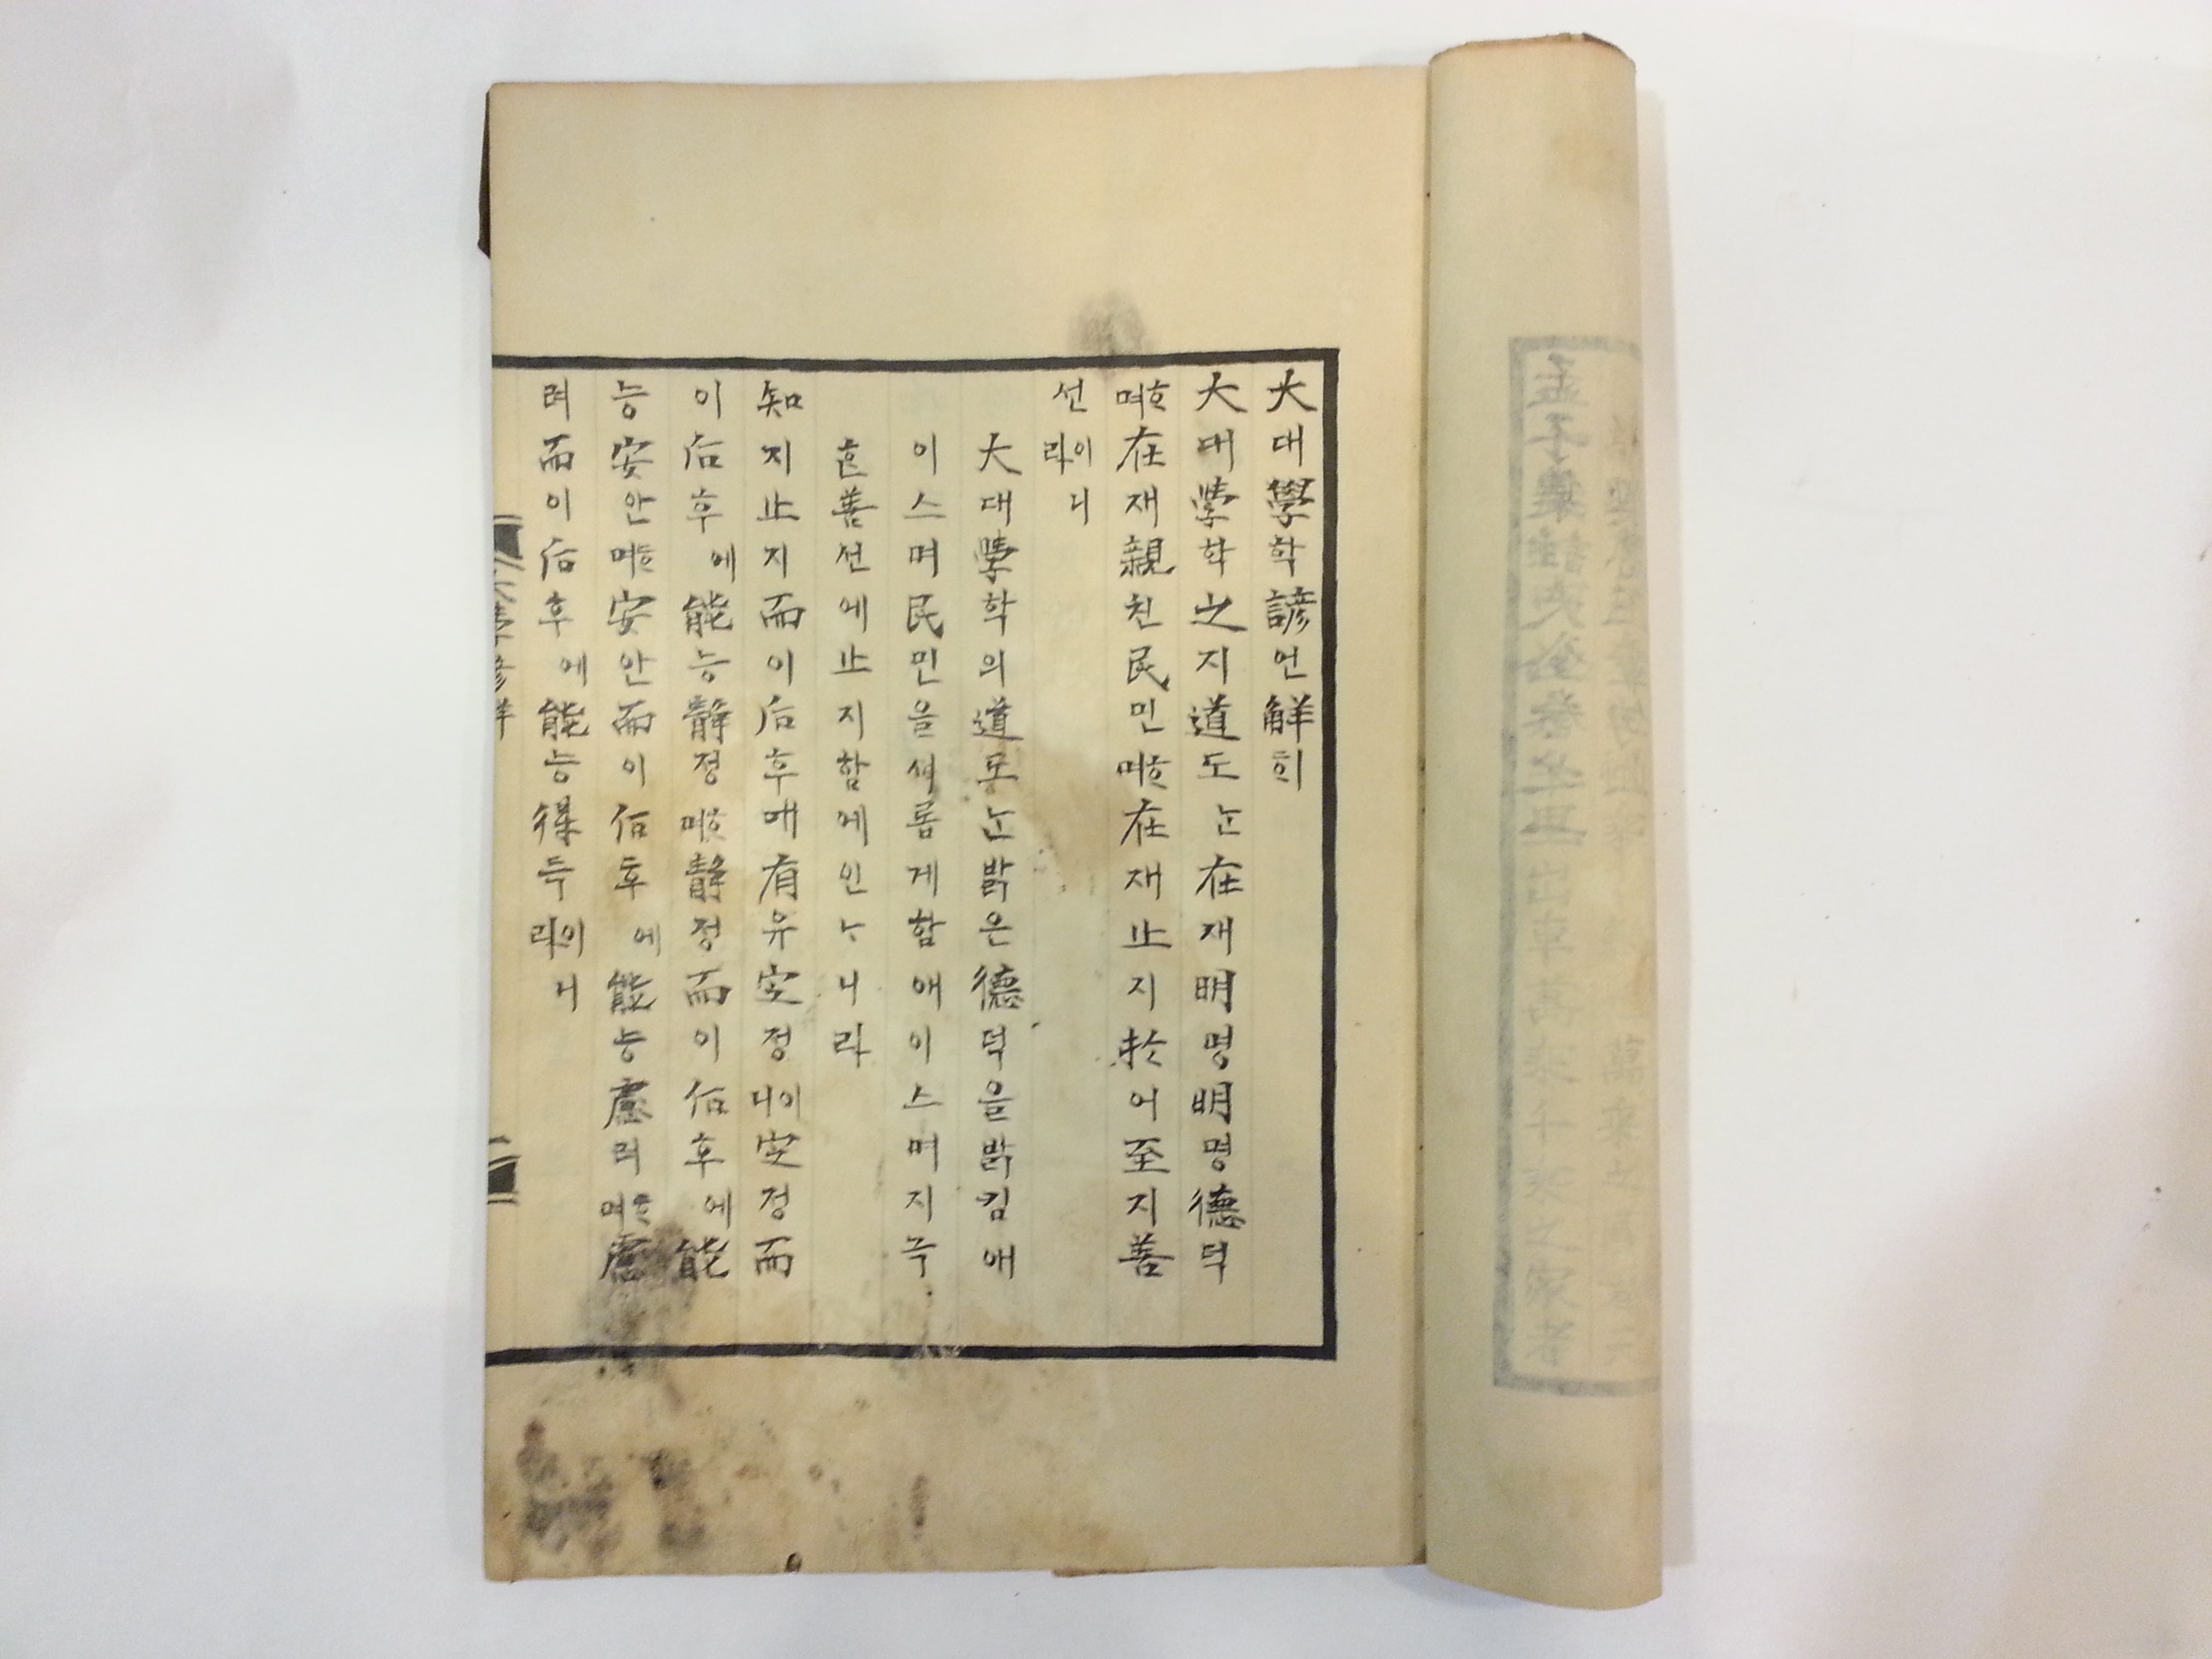 大대學학諺언解ᄒᆡ
大대學학之지道도ᄂᆞᆫ在재明명明명德덕
ᄒᆞ며在재親친民민ᄒᆞ며在재止지於어至지善
선이니라
大대學학의道도ᄂᆞᆫ밝은德덕을밝킴애
이스며民민을ᄉᆡ롭게함애이스며지극
ᄒᆞᆫ善선에止지함에인ᄂᆞ니라
知지止지而이后후에有유定정이니定정而
이后후에能능靜정ᄒᆞ며靜정而이后후에能
능安안ᄒᆞ며安안而이后후에能능慮려ᄒᆞ며慮
려而이后후에能능得득이니라